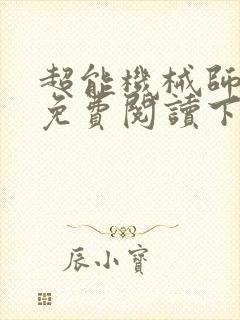 超能機械師
免費閱讀下
辰小寶